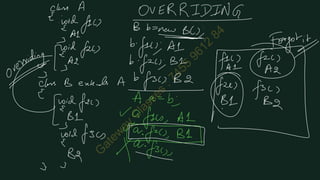 class A
OVERRIDING
{ void f1()
{ A1
}
void f2()
{ A2
}
}
Overriding
class B extends A
{ void f2()
{ B1
}
void f3()
{
B2
} }
B b=new B();
b.f1(); A1
b.f2(); B1
b.f3(); B2
A a=b;
a.f1(); A1
a.f2(); B1
a.f3();
Forgot it
f1() f2()
A1 A2
f2() f3()
B1 B2